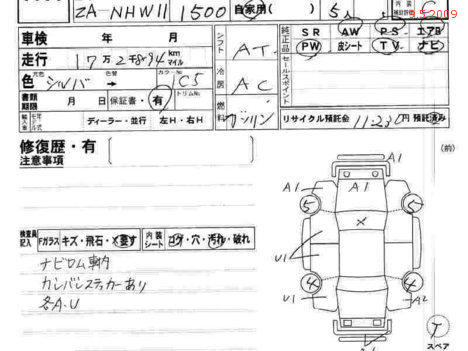 ZA-NHW11 1500 自家用( ) 5人
9.5.2009
車検 年 月 シフト AT 純正品 SR AW PS エアB
PW 皮シート TV ナビ
走行 17万2千894 km マイル
セールスポイント
色 元色 シルバー 色替 → カラーNo 1C5 冷房 AC
書類期限 月 日 保証書・有 トリムNo 燃料 ガソリン
輸入車 年モデル式 ディーラー・並行 左H・右H リサイクル預託金 11,230円 預託済み
修復歴・有
注意事項
(前)
A1
A1 A1
5 5
X
検査員記入 Fガラス キズ・飛石・X要す 内装シート コゲ・穴・汚れ・破れ
ナビロム車内
カンバンステッカーあり
各A.U
U1
4 4
U1 A2
T
スペア